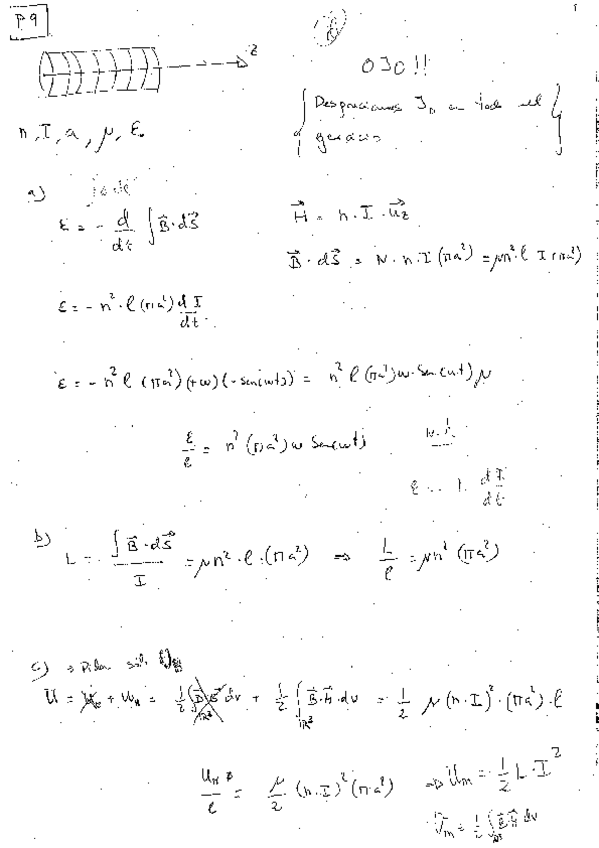 P.9
z
OJO!!
Despreciamos J_D en todo el
n, I, a, μ, ε₀
a)
ε = - d/dt ∫ B⃗·dS⃗
H⃗ = n·I·u⃗z
B⃗·dS⃗ = N·n·I(πa²) = μn²·l I(πa²)
ε = -n²·l(πa²) dI/dt
ε = -n² l (πa²)(+ω)(-sen(ωt)) = n² l (πa²)ω·Sen(ωt) μ
ε/l = n²(πa²)ω Sen(ωt)
dI/dt
b) L = ∫ B⃗·dS⃗ / I = μn²·l·(πa²) ⇒ L/l = μn²(πa²)
c)
U = + U_H = 1/2 ∫_ℝ³ dv + 1/2 ∫_ℝ³ B⃗·H⃗·dv = 1/2 μ(n·I)²·(πa²)·l
U_H/l = μ/2 (n·I)²(π·a²) U_m = 1/2 L·I²
U_m = 1/2 ∫ B⃗ H⃗ dv